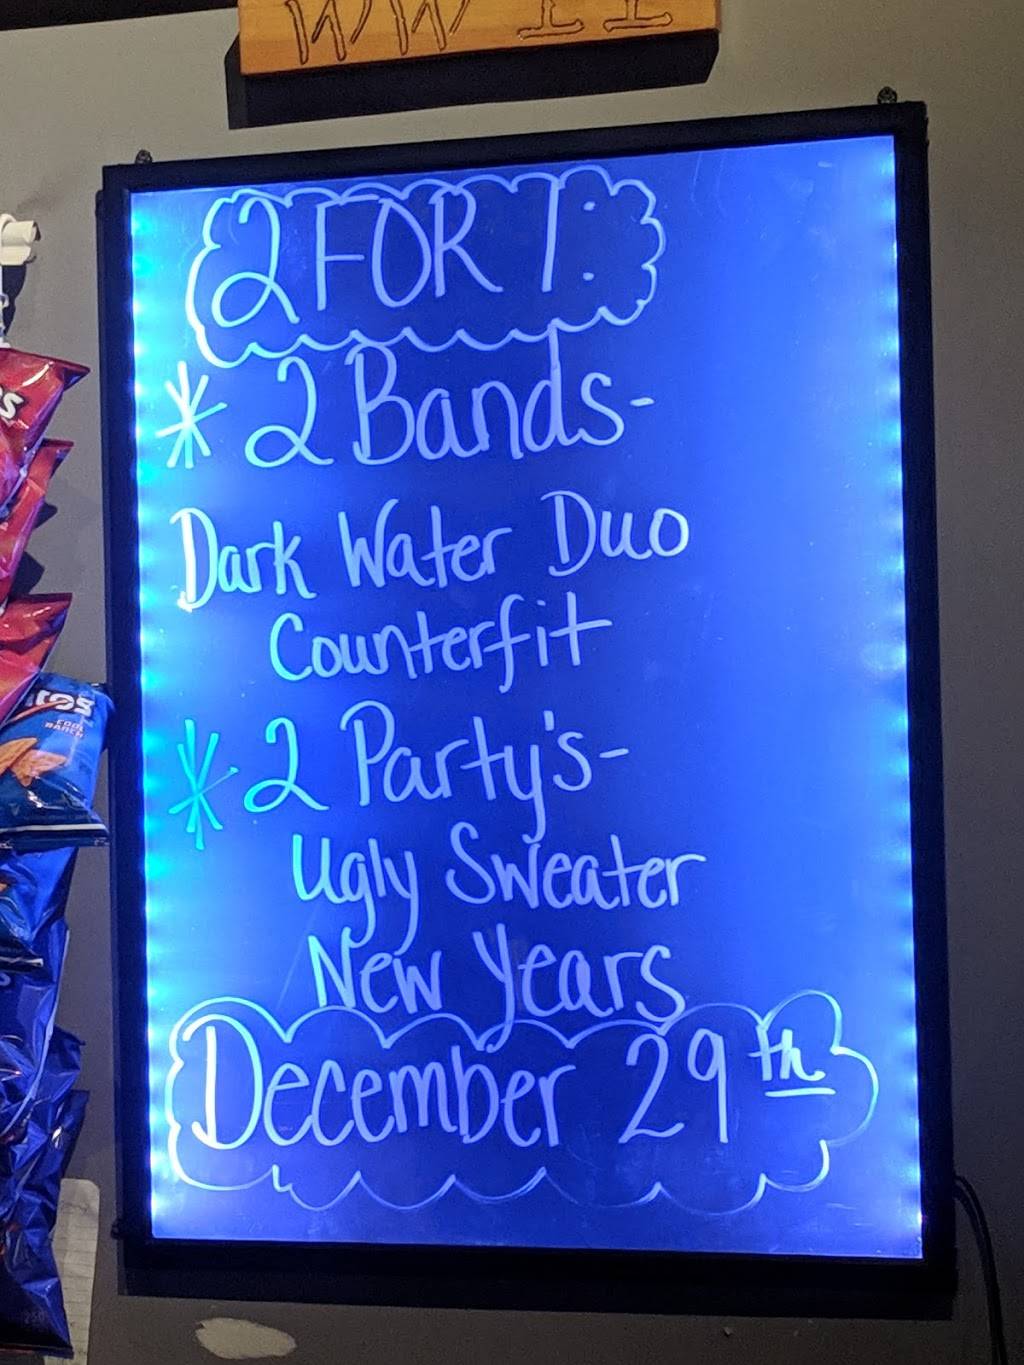 WWII
2 FOR 1:
* 2 Bands-
Dark Water Duo
Counterfit
* 2 Party's-
Ugly Sweater
New Years
December 29th
COOL
RANCH